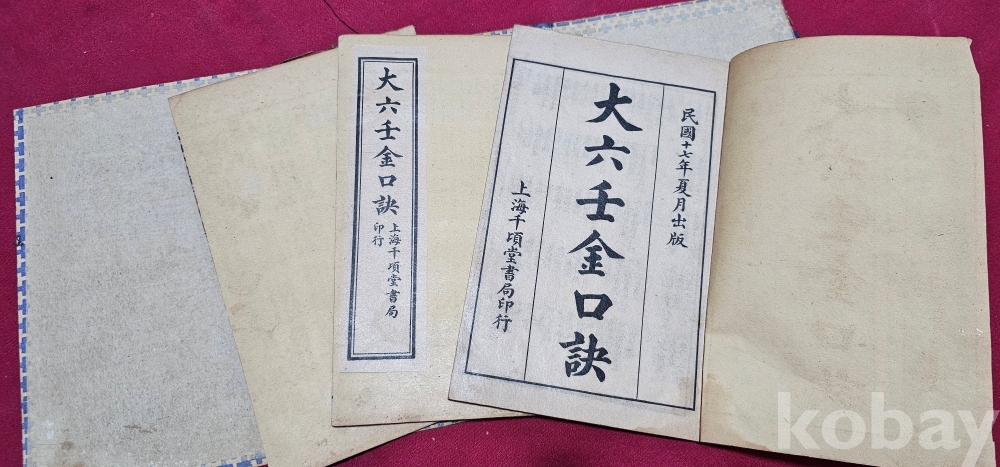 大六壬金口訣
上海千頃堂書局
印行
民國十七年夏月出版
大六壬金口訣
上海千頃堂書局印行
kobay